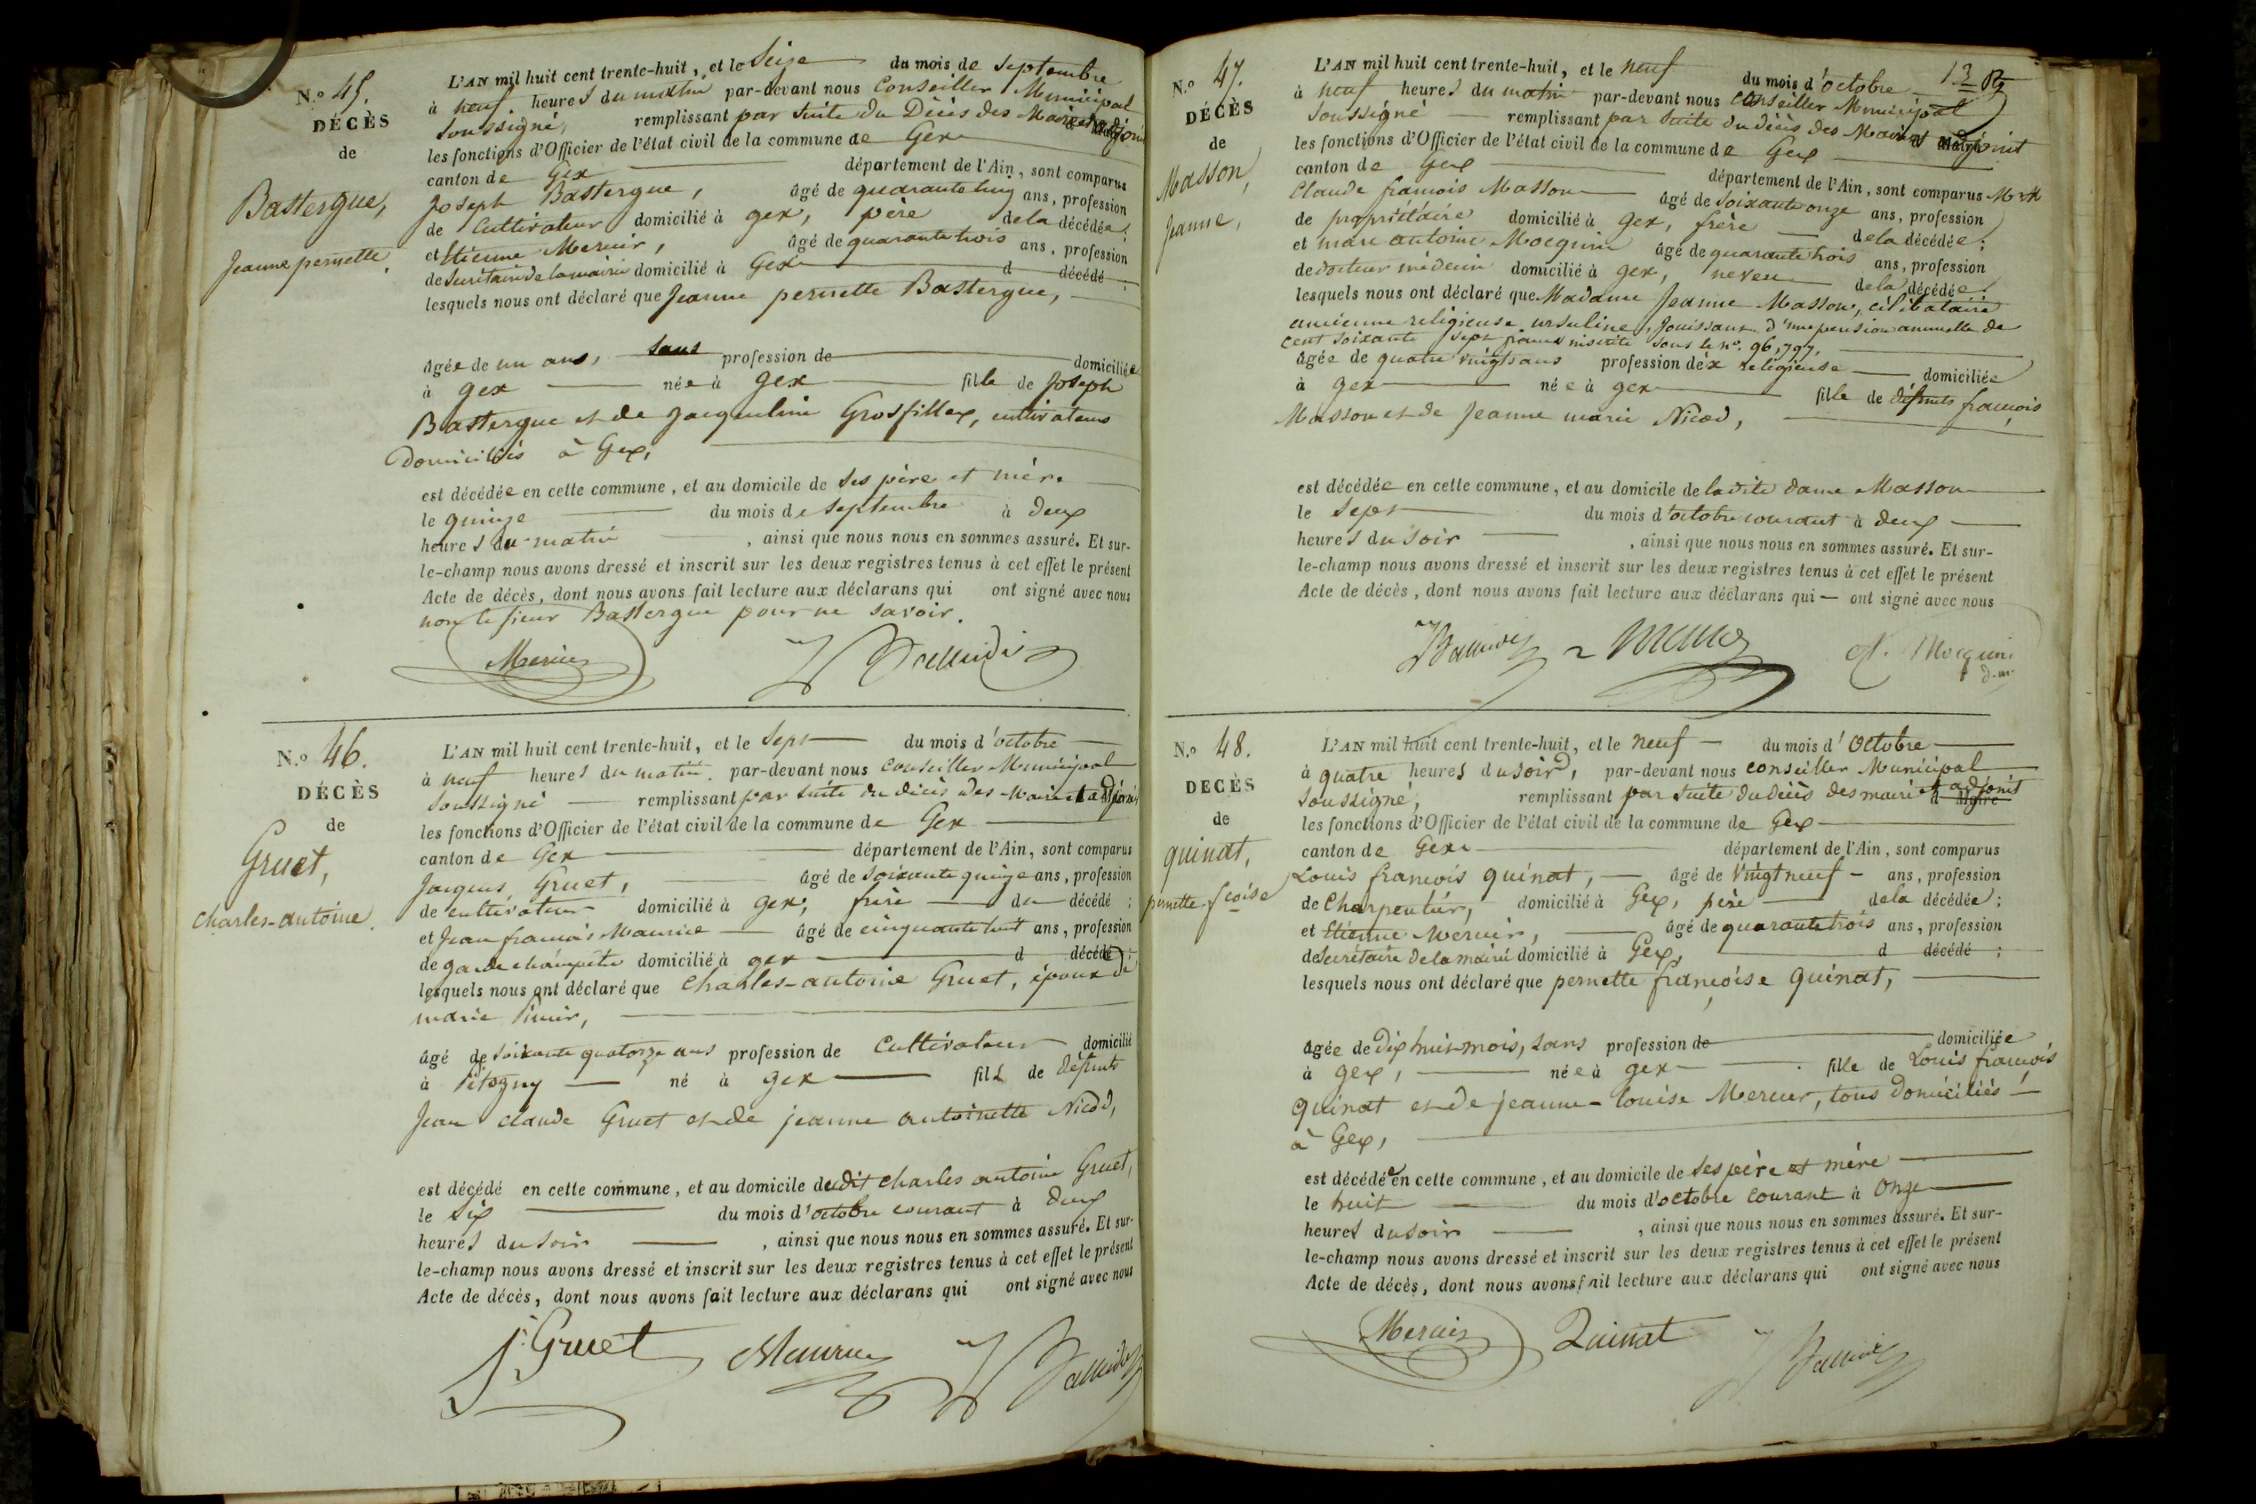 N.o 45.
DÉCÈS
de
Bastergue,
Jeanne pernette.
L'AN mil huit cent trente-huit, et le Seize du mois de Septembre
à neuf heures du matin par-devant nous Conseiller Municipal
Soussigné, remplissant par Suite du Décès des Maire et adjoint
les fonctions d'Officier de l'état civil de la commune de Gex
canton de Gex département de l'Ain, sont comparus
Joseph Bastergue, âgé de quarante cinq ans, profession
de Cultivateur domicilié à gex, père de la décédée;
et Etienne Mercier, âgé de quarante trois ans, profession
de Secrétaire de la mairie domicilié à Gex d décédé;
lesquels nous ont déclaré que Jeanne pernette Bastergue,
âgée de un ans, sans profession de domiciliée
à gex née à gex fille de Joseph
Bastergue et de Jacqueline Grosfillex, cultivateurs
Domiciliés à Gex,
est décédée en cette commune, et au domicile de Ses père et mère
le quinze du mois de Septembre à deux
heures du matin, ainsi que nous nous en sommes assuré. Et sur-
le-champ nous avons dressé et inscrit sur les deux registres tenus à cet effet le présent
Acte de décès, dont nous avons fait lecture aux déclarans qui ont signé avec nous
non le sieur Bastergue pour ne savoir.
Mercier
N.o 46.
DÉCÈS
de
Gruet,
Charles-antoine.
L'AN mil huit cent trente-huit, et le Sept du mois d'octobre
à neuf heures du matin. par-devant nous Conseiller Municipal
Soussigné remplissant par suite du décès des Maire et adjoint
les fonctions d'Officier de l'état civil de la commune de Gex
canton de Gex département de l'Ain, sont comparus
Jacques Gruet, âgé de soixante quinze ans, profession
de cultivateur domicilié à gex, frère du décédé;
et Jean françois Maurice âgé de cinquante huit ans, profession
de garde champêtre domicilié à gex d décédé;
lesquels nous ont déclaré que Charles-antoine Gruet, époux de
marie
âgé de soixante quatorze ans profession de Cultivateur domicilié
à Pitegny né à gex fils de défunts
Jean claude Gruet et de jeanne antoinette Nicod,
est décédé en cette commune, et au domicile dudit Charles antoine Gruet,
le six du mois d'octobre courant à deux
heures du soir, ainsi que nous nous en sommes assuré. Et sur-
le-champ nous avons dressé et inscrit sur les deux registres tenus à cet effet le présent
Acte de décès, dont nous avons fait lecture aux déclarans qui ont signé avec nous
J. Gruet Maurice
N.o 47.
DÉCÈS
de
Masson,
Jeanne,
13
L'AN mil huit cent trente-huit, et le neuf du mois d'octobre
à neuf heures du matin par-devant nous Conseiller Municipal
Soussigné remplissant par Suite du décès des Maire et adjoint
les fonctions d'Officier de l'état civil de la commune de Gex
canton de Gex département de l'Ain, sont comparus
Claude françois Masson âgé de soixante onze ans, profession
de propriétaire domicilié à gex, frère de la décédée;
et marc antoine Mocquin âgé de quarante trois ans, profession
de docteur médecin domicilié à gex, neveu de la décédée;
lesquels nous ont déclaré que Madame Jeanne Masson, célibataire
ancienne religieuse ursuline, Jouissant d'une pension annuelle de
cent soixante sept francs inscrite sous le no. 96,797,
âgée de quatre vingts ans profession d'éx religieuse domiciliée
à gex née à gex fille de défunts françois
Masson et de Jeanne marie Nicod,
est décédée en cette commune, et au domicile de ladite dame Masson
le Sept du mois d'octobre courant à deux
heures du soir, ainsi que nous nous en sommes assuré. Et sur-
le-champ nous avons dressé et inscrit sur les deux registres tenus à cet effet le présent
Acte de décès, dont nous avons fait lecture aux déclarans qui ont signé avec nous
Mocquin
d.m.
N.o 48.
DÉCÈS
de
quinat,
pernette fçoise
L'AN mil huit cent trente-huit, et le neuf du mois d'Octobre
à quatre heures du soir, par-devant nous conseiller Municipal
Soussigné, remplissant par suite du décès des maire et adjoint
les fonctions d'Officier de l'état civil de la commune de Gex
canton de Gex département de l'Ain, sont comparus
Louis françois quinat, âgé de Vingt neuf ans, profession
de Charpentier, domicilié à Gex, père de la décédée;
et Etienne Mercier, âgé de quarante trois ans, profession
de Secrétaire de la mairie domicilié à Gex, d décédé;
lesquels nous ont déclaré que pernette françoise quinat,
âgée de Dix huit mois, sans profession de domiciliée
à gex, née à gex fille de Louis françois
quinat et de jeanne-louise Mercier, tous Domiciliés
à Gex,
est décédée en cette commune, et au domicile de Ses père et mère
le huit du mois d'octobre courant à Onze
heures du soir, ainsi que nous nous en sommes assuré. Et sur-
le-champ nous avons dressé et inscrit sur les deux registres tenus à cet effet le présent
Acte de décès, dont nous avons fait lecture aux déclarans qui ont signé avec nous
Mercier Quinat